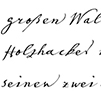 großen Wal
Holzhacker
seinen zwei